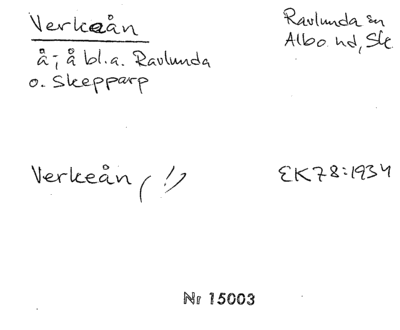 Verkeån
Ravlunda sn
Albo hd, Sk
å; å bl.a. Ravlunda
o. Skepparp
Verkeån, (!)
EK78:1934
Nr 15003